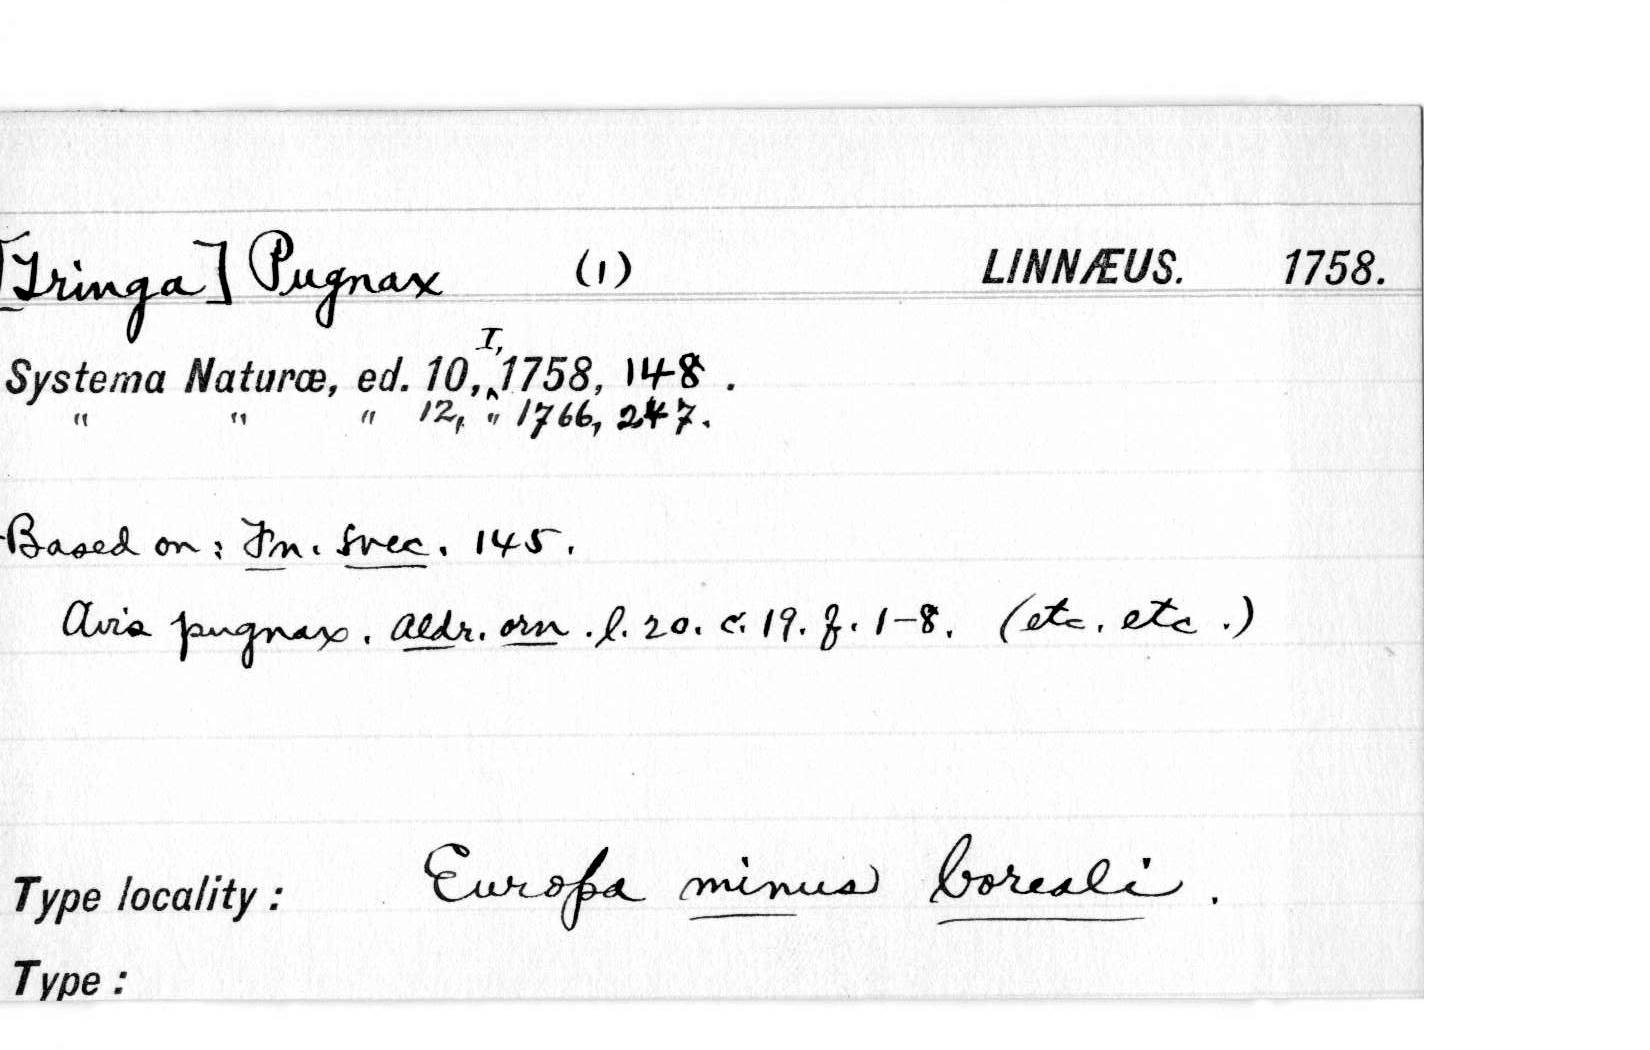 [Tringa] Pugnax (1) LINNÆUS. 1758.
Systema Naturæ, ed. 10, I, 1758, 148.
" " " 12, " 1766, 247.
Based on: Fn. svec. 145.
Avis pugnax. Aldr. orn. l. 20. c. 19. f. 1-8. (etc. etc.)
Type locality: Europa minus boreali.
Type: